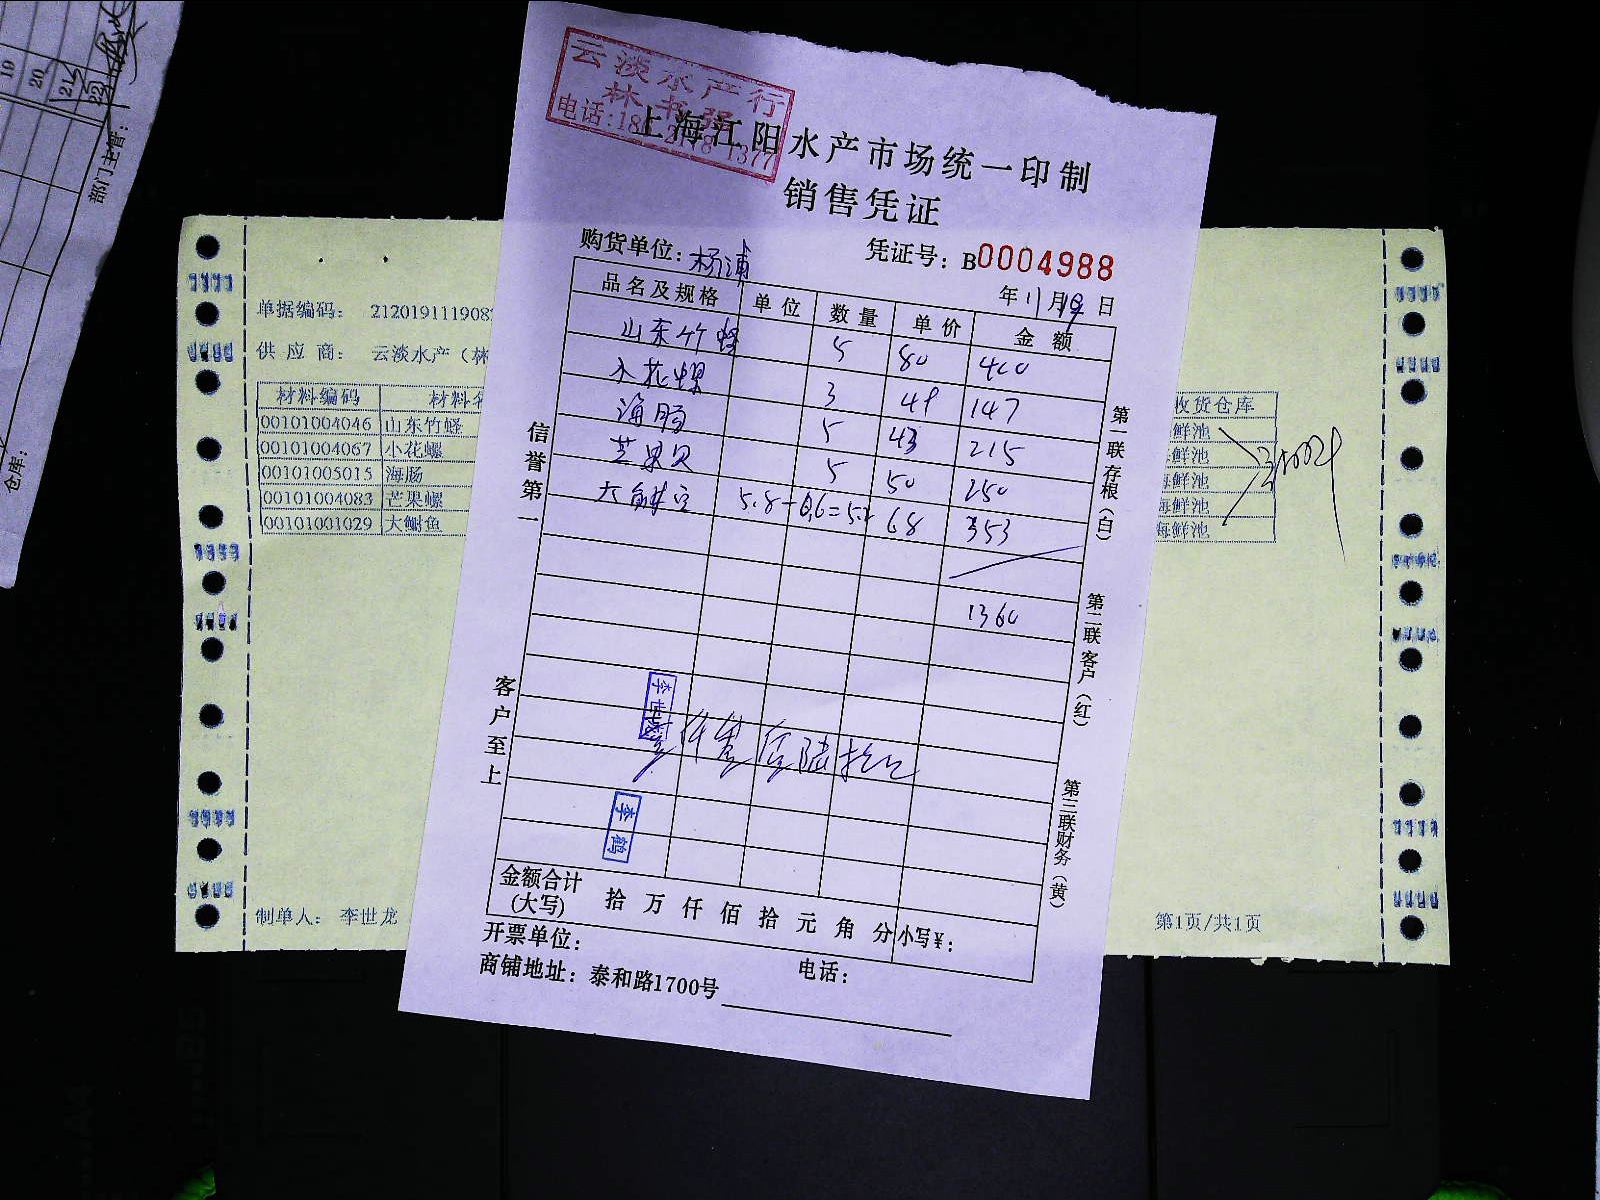 19
20
21
22
部门主管：
仓库：
云淡水产行
林书强
上海江阳水产市场统一印制
销售凭证
购货单位：杨浦
凭证号：B0004988
年11月19日
品名及规格 单位 数量 单价 金额
山东竹蛏 5 80 400
小花螺 3 49 147
海肠 5 43 215
芒果贝 5 50 250
5.8-0.6=5.2 68 353
1360
壹仟叁佰陆拾元
李世龙
李鹤
金额合计
(大写) 拾万仟佰拾元角分 小写￥：
开票单位：
电话：
商铺地址：泰和路1700号
信誉第一
客户至上
第一联存根（白）
第二联客户（红）
第三联财务（黄）
单据编码： 212019111908
供应商： 云淡水产（林
材料编码 材料
00101004046 山东竹蛏
00101004067 小花螺
00101005015 海肠
00101004083 芒果螺
00101001029 大鲋鱼
收货仓库
鲜池
海鲜池
海鲜池
海鲜池
海鲜池
制单人： 李世龙
第1页/共1页